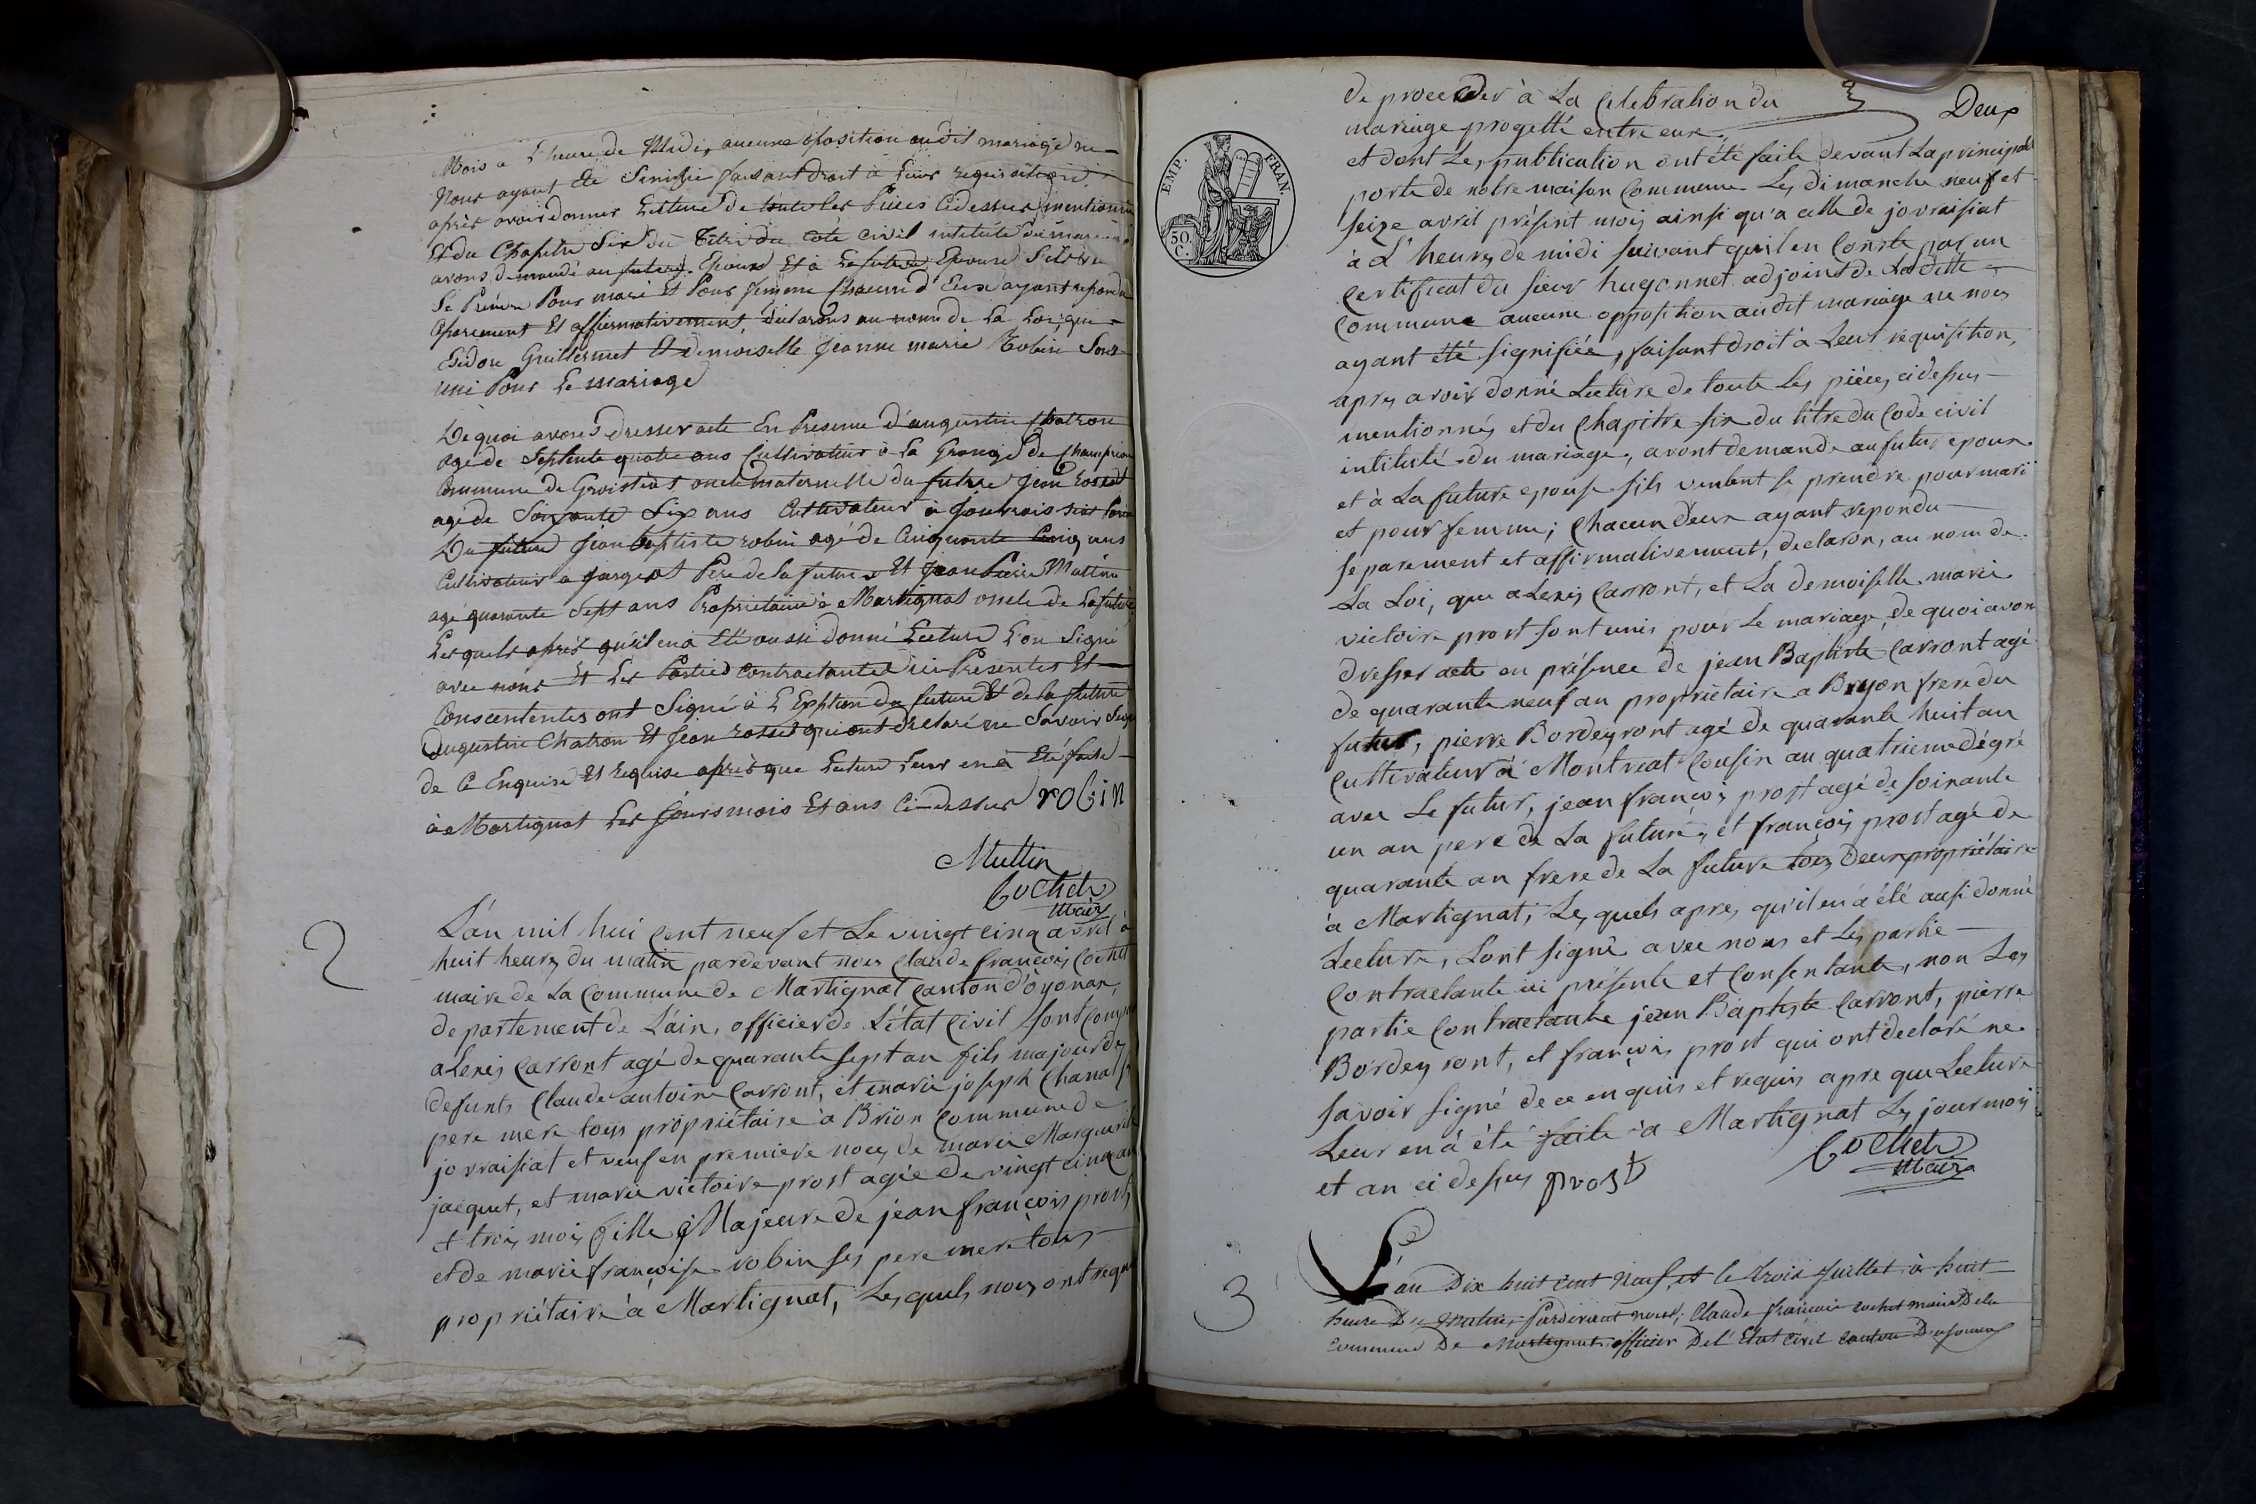 Mois a l'heure de Midi, aucune oposition audit mariage ne
Nous ayant Eté Senifie faisant droit à Leur requisition,
après avoir donner Lecture de toutes les Pieces Cidessus mentionné
Et du Chapitre Six du Titre du Code Civil intitulé du mariage
avons demandé au futur Epoux Et à La future Epouse S'ils veu
Se Prendre Pour mari Et Pour femme Chacun d'Eux ayant repondu
Separement Et affirmativement, declarons au nom de La Loi, que
Isidore Guillermet Et demoiselle Jeanne marie Robin Sont
uni Pour Le mariage
De quoi avons Dresser acte En Presence d'augustin Chatron
agé de Septente quatre ans Cultivateur à La Grange de Champ
Commune de Groissiat oncle maternelle du futur Jean rosset
agé de Soixante Six ans Cultivateur à
Du futur Jean baptiste robin agé de Cinquante Cinq ans
Cultivateur a Pere de la future Et Jean Pierre Mattin
age quarante Sept ans Proprietaire à Martignat oncle de La future
Lesquels après qu'il en a Eté aussi donné Lecture L'on Signé
avec nous Et Les Parties Contractantes ici Presentes Et
Consententes ont Signé à L'Exption du future Et de la future
Augustin Chatron Et Jean rosset qui ont declaré ne Savoir Signe
de Ce Enquire Et requise après que Lecture Leur en a Eté faite
à Martignat Les Jours mois Et ans Ci-dessus robin
Mattin
Cochet
Maire
2
L'an mil hui Cent neuf et Le vingt cinq avril à
huit heures du matin pardevant nous Claude François Cochet
maire de La Commune de Martignat Canton d'oyonax,
departement de L'ain, officier de L'état Civil sont Comparu
alexis Carront agé de quarante sept an fils majour des
defunts Claude antoine Carront, et marie joseph Chanal
pere mere tous propriétaire à Brion Commune de
jovraisiat et veuf en premiere noces de marie Marguerite
jacquet, et marie victoire prost agée de vingt cinq an
et trois mois fille Majeure de jean françois prost
et de marie françoise robin ses pere mere tous
propriétaire à Martignat, Lesquels nous ont requis
Deux
de proceder à La Celebration du
mariage progetté entre eux.
et dont Les publication ont été faite devant La principale
porte de notre maison Commune Les dimanche neuf et
seize avril présent mois ainsi qu'a celle de jovraisiat
à L'heure de midi suivant qu'il en Conste par un
Certificat du sieur hugonnet adjoint de La dette
Commune aucune opposition audit mariage ne nous
ayant été signifiée, faisant droit à Leur requisition,
apres avoir donné Lecture de toute Les pièces cidessus
mentionnés et du Chapitre six du titre du Code civil
intitulé du mariage, avont demandé au futur epoux
et à La future epouse sils veulent se prendre pour mari
et pour femme; Chacun d'eux ayant repondu
separement et affirmativement, declaron, au nom de
La Loi, que alexis Carront, et La demoiselle marie
victoire prost sont unis pour Le mariage, de quoi avon
dresser acte en présence de jean Baptiste Carront agé
de quarante neuf an propriétaire a Bryon frere du
futur, pierre Bordeyront agé de quarante huit an
Cultivateur à Montreat Cousin au quatrieme dégré
avec Le futur, jean françois prost agé de soixante
un an pere de La future, et françois prost agé de
quarante an frere de La future tous deux propriétaire
à Martignat, Lesquels apres qu'il en a été aussi donné
Lecture, L'ont signé avec nous et Les partie
Contractante ici présente et Consentante, non Les
partie Contractante jean Baptiste Carront, pierre
Bordeyront, et françois prost qui ont declaré ne
savoir signé de ce enquis et requis apre que Lecture
Leur en à été faite à Martignat Les jour mois
et an ci dessus prost
Cochet
Maire
EMP. FRAN.
50 C.
3
L'an Dix huit cent Neuf, et le trois Juillet à huit
heure Du Matin, Pardevant nous, Claude françois cochet maire De la
commune De Martignat officier De l'Etat Civil canton D'oyonnax